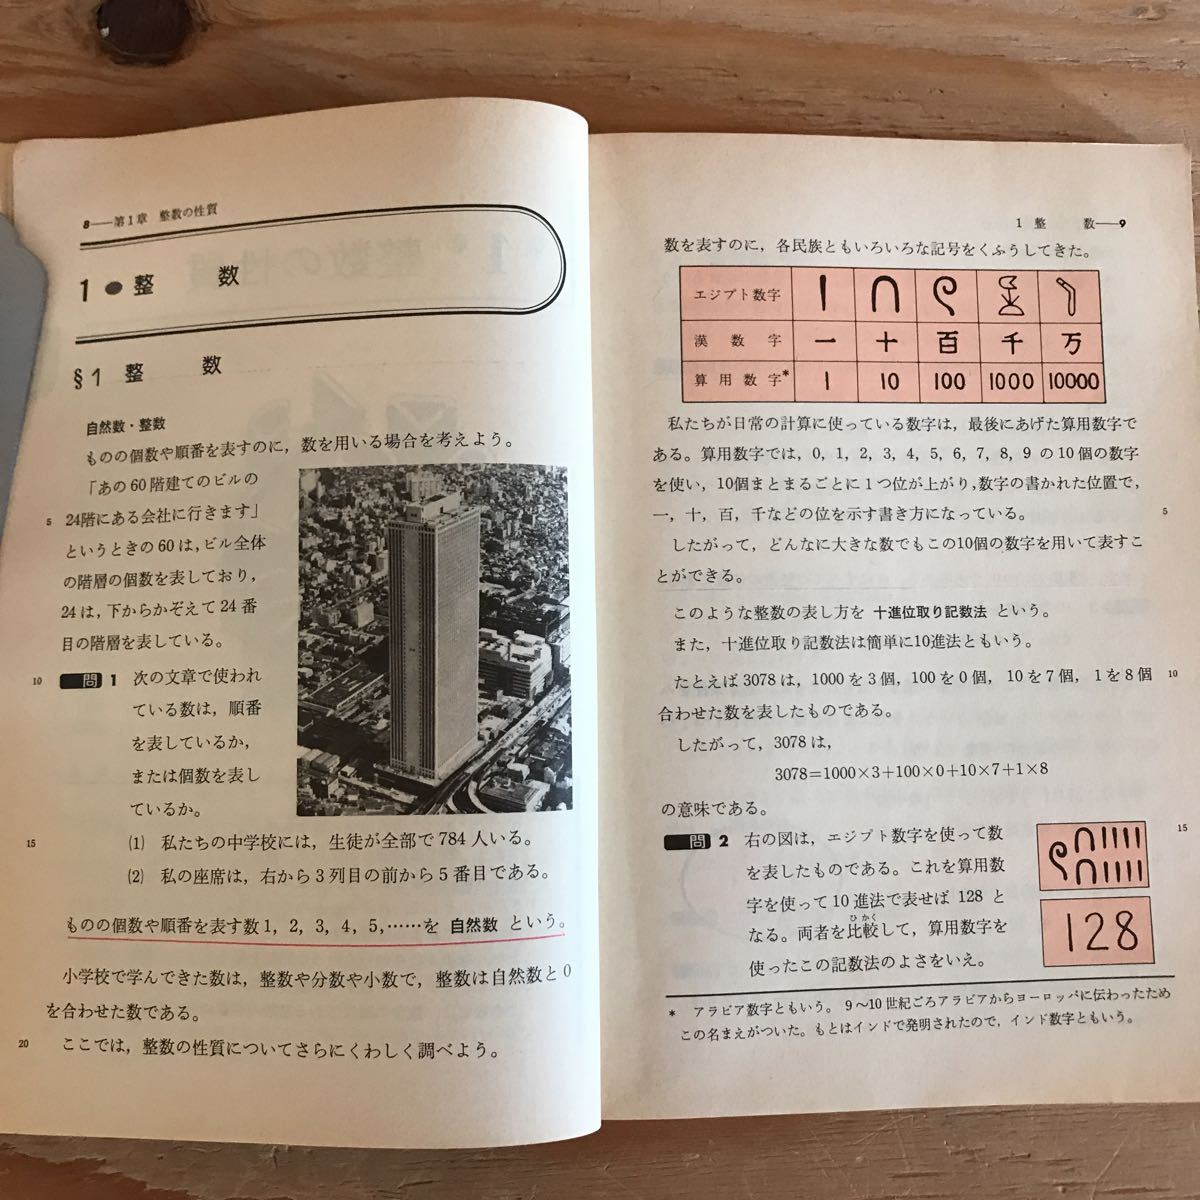 8——第1章　整数の性質
1●整　　数
§1　整　　数
自然数・整数
ものの個数や順番を表すのに，数を用いる場合を考えよう。
「あの60階建てのビルの
5　24階にある会社に行きます」
というときの60は，ビル全体
の階層の個数を表しており，
24は，下からかぞえて24番
目の階層を表している。
10　問 1　次の文章で使われ
ている数は，順番
を表しているか，
または個数を表し
ているか。
15　(1)　私たちの中学校には，生徒が全部で784人いる。
(2)　私の座席は，右から3列目の前から5番目である。
ものの個数や順番を表す数1，2，3，4，5，……を 自然数 という。
小学校で学んできた数は，整数や分数や小数で，整数は自然数と0
を合わせた数である。
20　ここでは，整数の性質についてさらにくわしく調べよう。
1　整　　数——9
数を表すのに，各民族ともいろいろな記号をくふうしてきた。
エジプト数字
漢　数　字　一　十　百　千　万
算用数字*　1　10　100　1000　10000
私たちが日常の計算に使っている数字は，最後にあげた算用数字で
ある。算用数字では，0，1，2，3，4，5，6，7，8，9 の10個の数字
を使い，10個まとまるごとに1つ位が上がり，数字の書かれた位置で，
一，十，百，千などの位を示す書き方になっている。　5
したがって，どんなに大きな数でもこの10個の数字を用いて表すこ
とができる。
このような整数の表し方を 十進位取り記数法 という。
また，十進位取り記数法は簡単に10進法ともいう。
たとえば3078は，1000を3個，100を0個，10を7個，1を8個　10
合わせた数を表したものである。
したがって，3078は，
3078=1000×3+100×0+10×7+1×8
の意味である。
問 2　右の図は，エジプト数字を使って数　15
を表したものである。これを算用数
字を使って10進法で表せば128と
なる。両者を比較して，算用数字を
ひかく
使ったこの記数法のよさをいえ。
128
*　アラビア数字ともいう。9〜10世紀ごろアラビアからヨーロッパに伝わったため
この名まえがついた。もとはインドで発明されたので，インド数字ともいう。